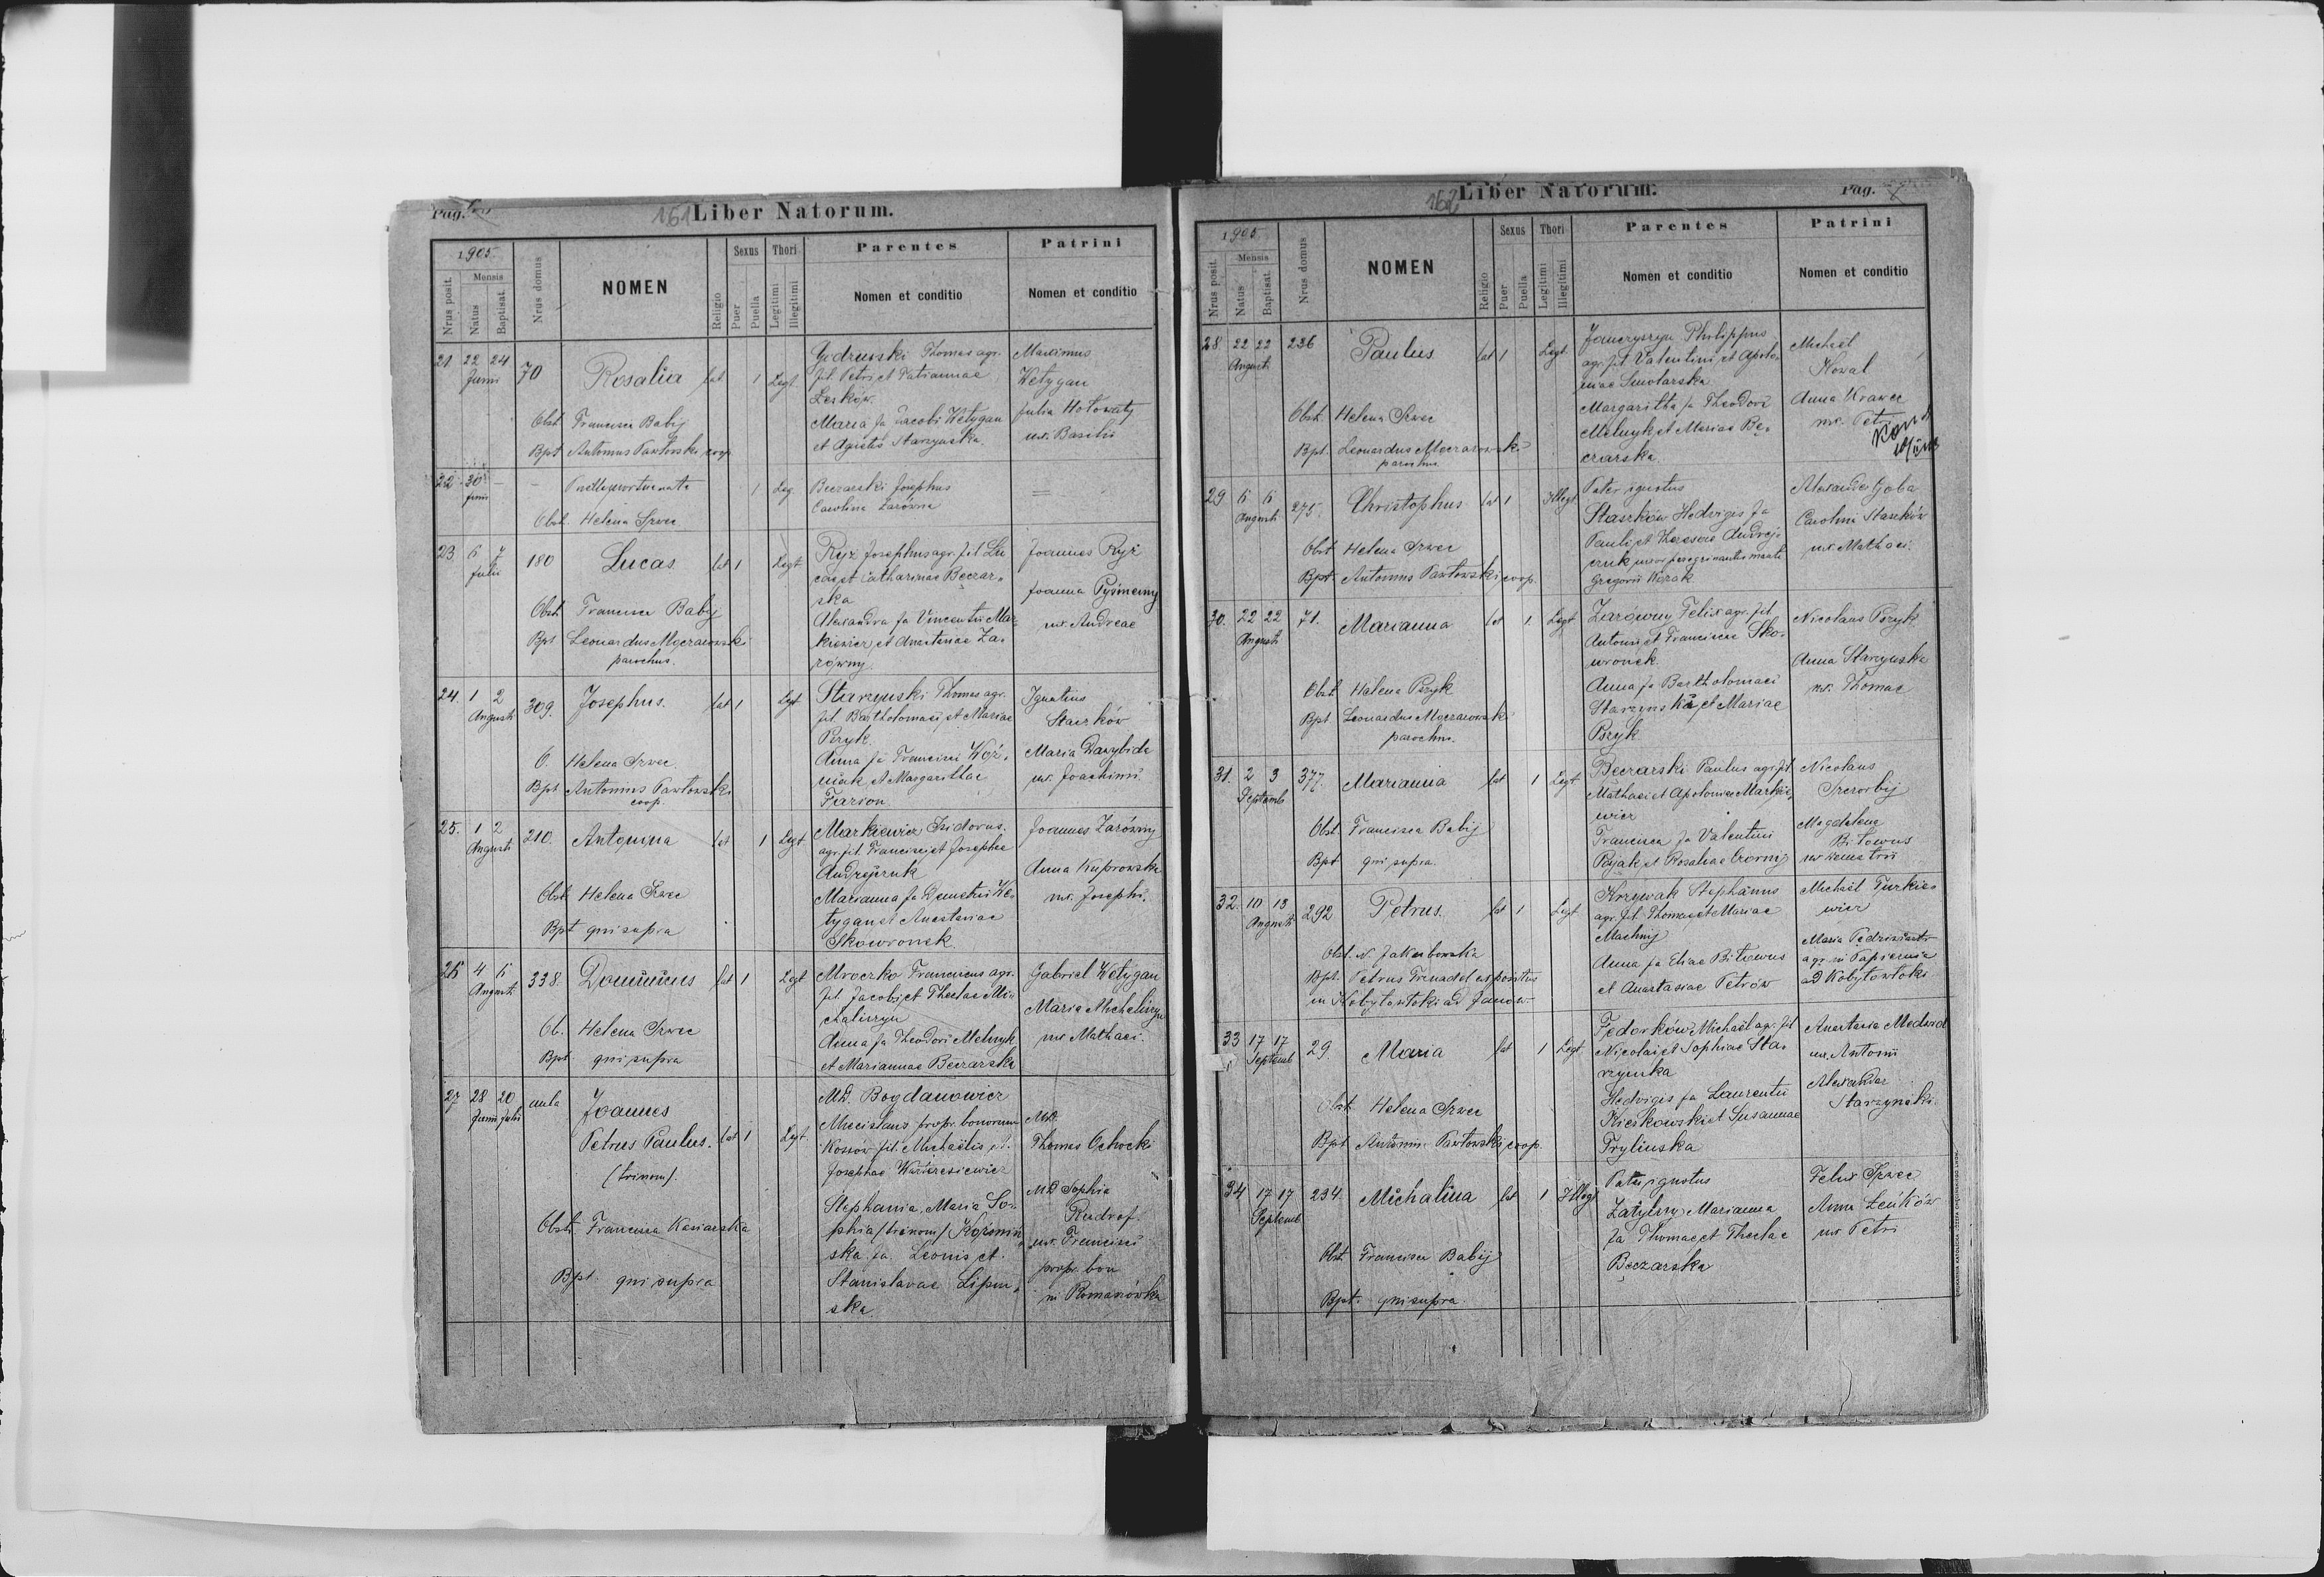 Pag.
161 Liber Natorum.
1905.
Mensis
Nrus posit.
Natus
Baptisat.
Nrus domus
NOMEN
Religio
Sexus
Puer
Puella
Thori
Legitimi
Illegitimi
Parentes
Nomen et conditio
Patrini
Nomen et conditio
21 22 24 Junii 70 Rosalia lat 1 Legt.
Obst Francisca Babij
Bpt Antonius Pawłowski coop.
Thomas agr.
fil. Petri et Tatiannae
Leśków.
Maria fa Jacobi Wetygan
et Agnetis Starzyńska.
Maximus
Wetygan
Julia Hołowaty
ux. Basilii
22 30 Junii - - Puella mortuenata 1 Leg
Obst. Helena Szwec
Beczarski Josephus
Carolina Zarówna
23. 6 7 Julii 180 Lucas lat 1 Legt
Obst Francisca Babij
Bpt Leonardus Moczarowski
parochus.
Ryż Josephus agr. fil. Lu
cae et Catharinae Beczar-
ska
Alexandra fa Vincentii Mar-
kiewicz et Anastasiae Za-
równy.
Joannes Ryż
Joanna Pyśmenny
ux. Andreae
24. 1 2 Augusti 309. Josephus. lat 1 Legt
O. Helena Szwec.
Bpt Antonius Pawłowski
coop.
Starzyński Thomas agr.
fil. Bartholomaei et Mariae
Pszyk.
Anna fa Francisci Woź-
niak et Margarithae
Farion
Ignatius
Staszków
Maria
ux. Joachimi.
25. 1 2 Augusti 210. Antonina lat 1 Legt
Obst Helena Szwec
Bpt qui supra
Markiewicz Isidorus.
agr. fil. Francisci et Josephae
Andrejczuk
Marianna fa Demetrii We-
tygan et Anastasiae
Skowronek.
Joannes Zarówny
Anna Kuprowska
ux. Josephi.
26 4 6 Augusti 338. Dominicus lat 1 Legt
Ob. Helena Szwec
Bpt qui supra
Mroczko Franciscus agr.
fil. Jacobi et Theclae Mi-
chaliszyn
Anna fa Theodori Melnyk
et Mariannae Beczarska
Gabriel Wetygan
Maria Michaliszyn
ux Mathaei.
27 28 20 Junii Julii aula Joannes
Petrus Paulus. lat 1 Legt.
(trinom).
Obst. Francisca Kasiarska
Bpt. qui supra
MD. Bogdanowicz
Mieceslaus propr. bonorum
Kossów fil. Michaelis et
Josephae Warteresiewicz
Stephania, Maria So-
phia (trinom) Koźmiń-
ska fa. Leonis et.
Stanislavae Lipiń-
ska.
MD.
Thomas Ochocki
MD Sophia
Rudrof.
ux. Francisci
propr. bon
in Romanówka
162 Liber Natorum.
Pag.
1905
Mensis
Nrus posit.
Natus
Baptisat.
Nrus domus
NOMEN
Religio
Sexus
Puer
Puella
Thori
Legitimi
Illegitimi
Parentes
Nomen et conditio
Patrini
Nomen et conditio
28 22 22 Augusti 236 Paulus lat 1 Legt.
Obst. Helena Szwec
Bpt. Leonardus Moczarowski
parochus.
Janczyszyn Philippus
agr. fil. Valentini et Apolo-
niae Smolarska
Margaritha fa Theodori
Melnyk et Mariae Be-
czarska.
Michaël
Kowal
Anna Krawec
ux. Petri
29 6 6 Augusti 275. Christophus lat 1 Illegt
Obst Helena Szwec
Bpt. Antonius Pawłowski coop.
Pater ignotus
Staszków Hedvigis fa
Pauli et Theresiae Andrej-
czuk uxor peregrinantis mariti
Gregorii Kozak
Alexander Goba
Carolina Staszków
ux. Mathaei.
30. 22 22 Augusti 71. Marianna lat 1 Legt
Obst. Helena Pszyk
Bpt Leonardus Moczarowski
parochus.
Zarówny Felix agr. fil.
Antonii et Franciscae Sko-
wronek
Anna fa Bartholomaei
Starzyńska et Mariae
Pszyk
Nicolaus Pszyk
Anna Starzyńska
ux. Thomae
31. 2 3 Septemb. 377. Marianna lat 1 Legt
Obst. Francisca Babij
Bpt qui supra.
Beczarski Paulus agr. fil
Mathaei et Apoloniae Markie-
wicz
Francisca fa Valentini
Pojak et Rosaliae Czornij
Nicolaus
Szczorbij
Magdalena
Bitowus
ux Demetrii
32. 10 13 Augusti 292 Petrus. lat 1 Legt
Obst. N. Jakubowska
Bpt. Petrus Trznadel expositus
in Kobyłowłoki ad Janów.
Krzywak Stephanus
agr. fil. Thomae et Mariae
Machnij
Anna fa Eliae Bitowus
et Anastasiae Petrów
Michaël Turkie-
wicz
Maria
agr. in Papiernia
ad Kobyłowłoki
33 17 17 Septemb 29. Maria lat 1 Legt
Obst Helena Szwec
Bpt Antonius Pawłowski coop.
Fedorków Michaël agr. fil
Nicolai et Sophiae Sta-
rzyńska
Hedvigis fa Laurentii
Kieskowski et Susannae
Trylińska
Anastasia Medwid
ux. Antonii
Alexander
Starzyński
34 17 17 Septemb 234. Michalina lat 1 Illegt
Obst Francisca Babij
Bpt. qui supra
Pater ignotus
Zatylny Marianna
fa Thomae et Theclae
Beczarska
Felix Szwec
Anna Leśków
ux Petri